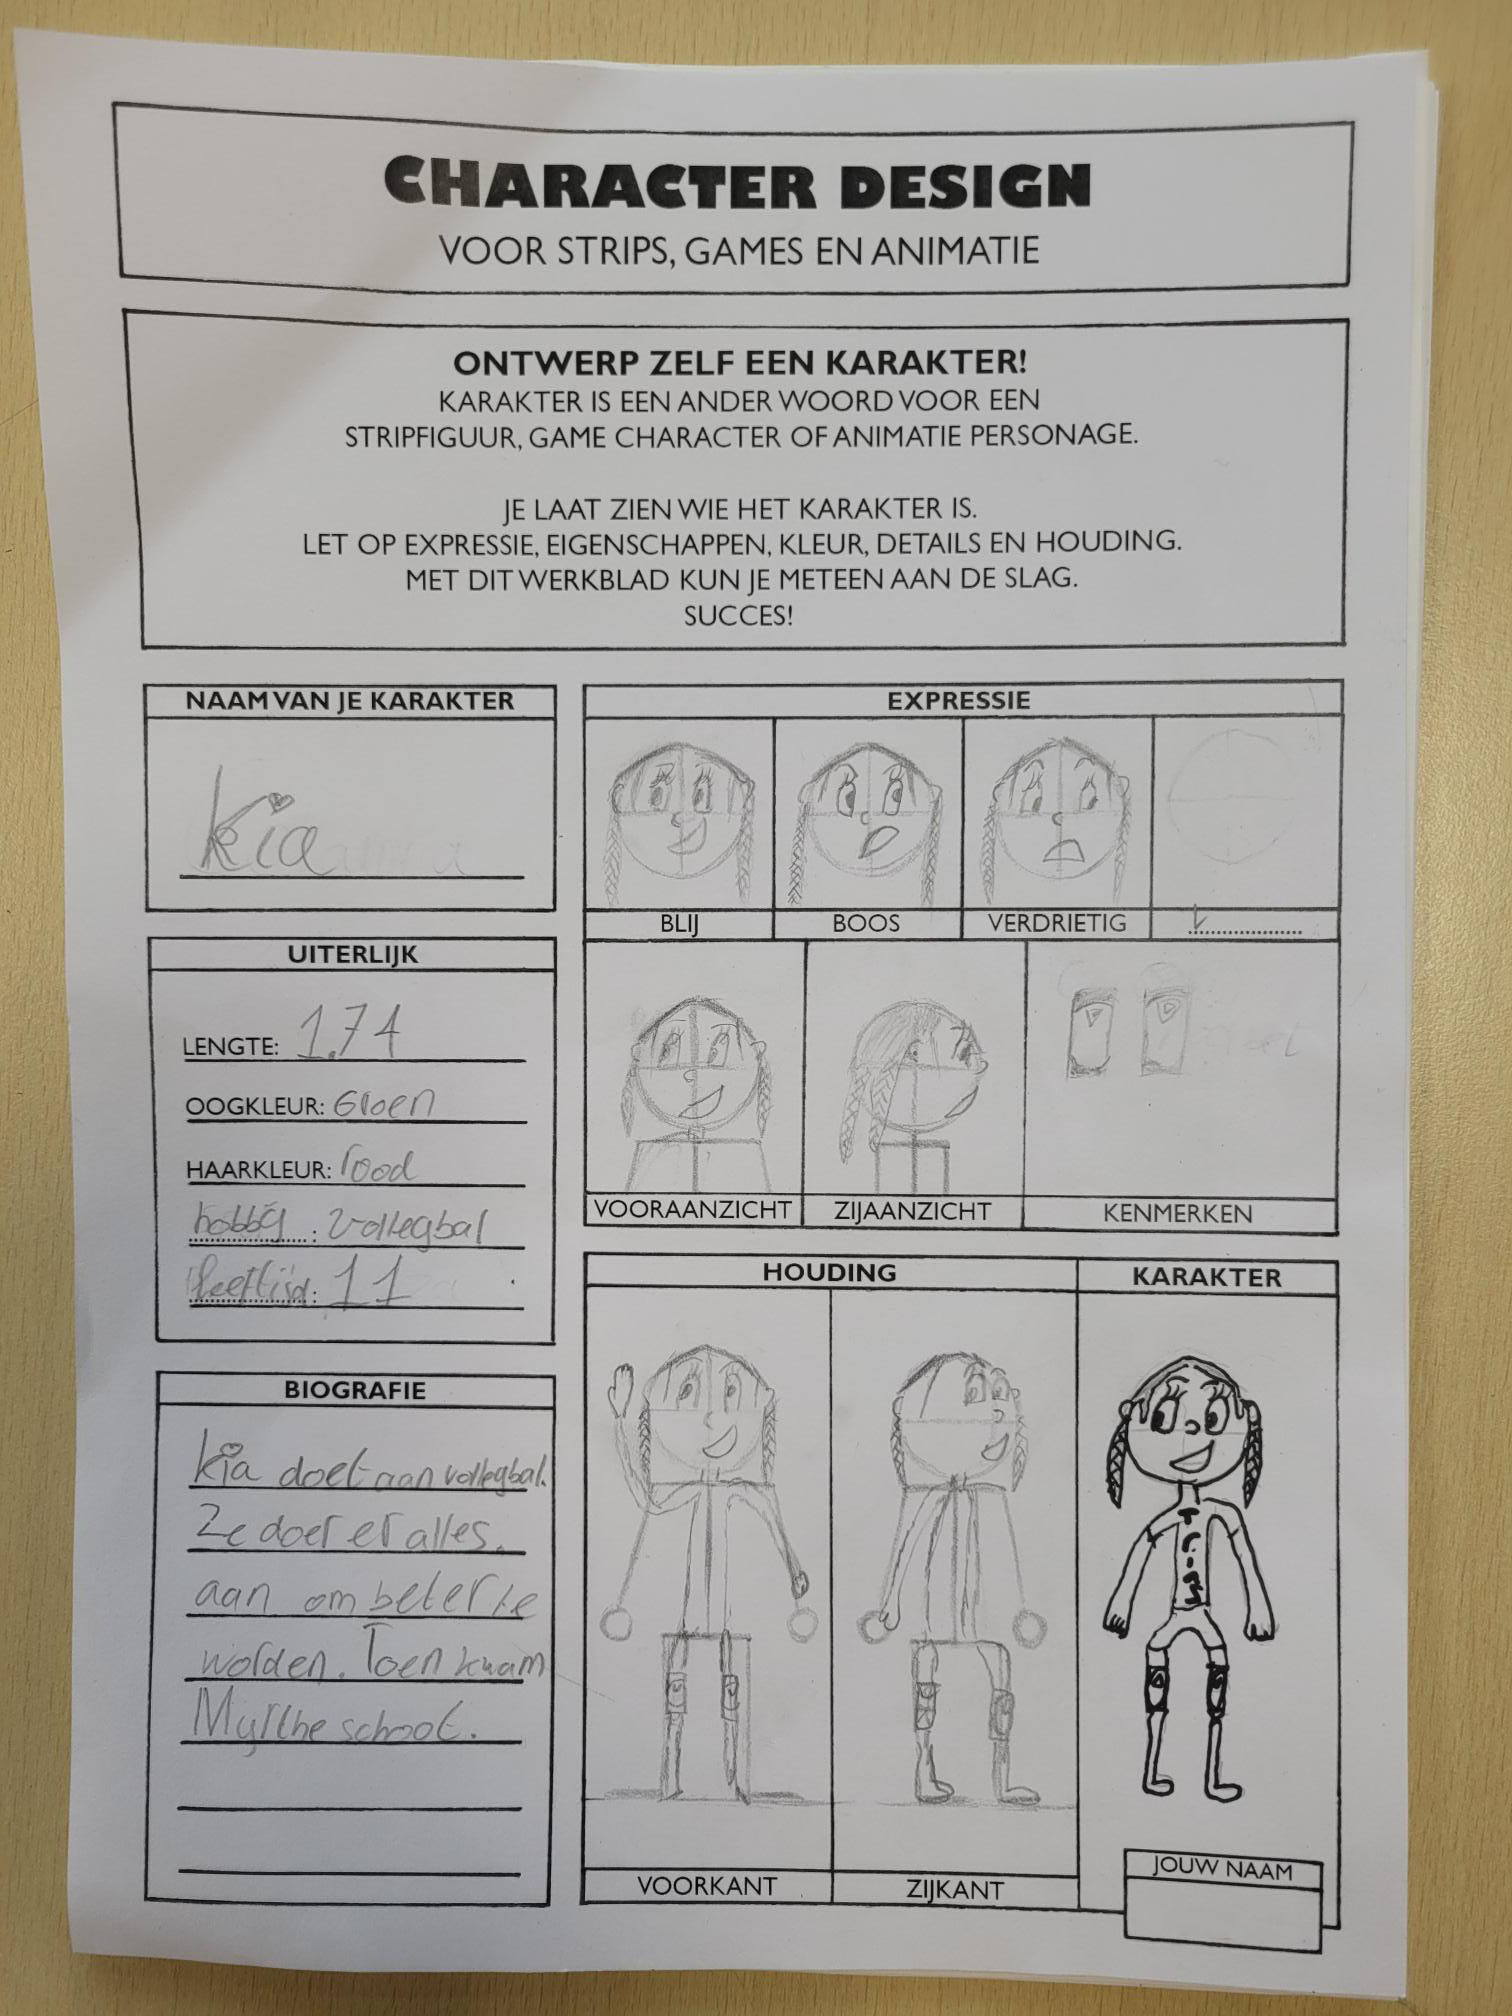 CHARACTER DESIGN
VOOR STRIPS, GAMES EN ANIMATIE
ONTWERP ZELF EEN KARAKTER!
KARAKTER IS EEN ANDER WOORD VOOR EEN
STRIPFIGUUR, GAME CHARACTER OF ANIMATIE PERSONAGE.
JE LAAT ZIEN WIE HET KARAKTER IS.
LET OP EXPRESSIE, EIGENSCHAPPEN, KLEUR, DETAILS EN HOUDING.
MET DIT WERKBLAD KUN JE METEEN AAN DE SLAG.
SUCCES!
NAAM VAN JE KARAKTER
Kia
UITERLIJK
LENGTE: 1.74
OOGKLEUR: Groen
HAARKLEUR: rood
hobby : Volleybal
leeftijd: 11
BIOGRAFIE
Kia doet aan volleybal.
Ze doet er alles.
aan om beter te
worden. Toen kwam
Myrthe schoot.
EXPRESSIE
BLIJ
BOOS
VERDRIETIG
VOORAANZICHT
ZIJAANZICHT
KENMERKEN
HOUDING
KARAKTER
VOORKANT
ZIJKANT
JOUW NAAM